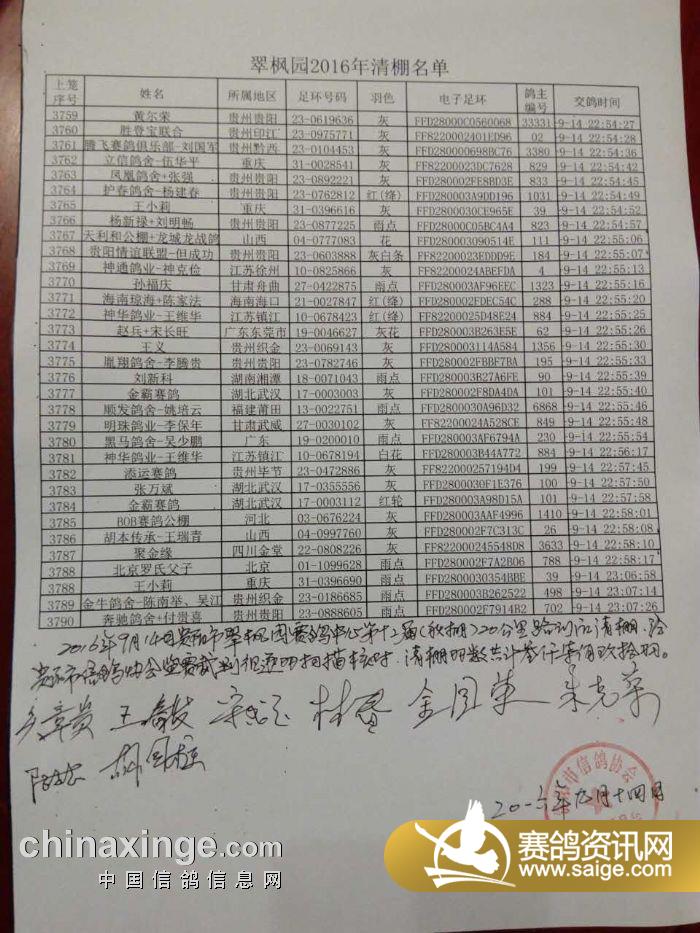 翠枫园2016年清棚名单
上笼序号 姓名 所属地区 足环号码 羽色 电子足环 鸽主编号 交鸽时间
3759 黄尔荣 贵州贵阳 23-0619636 灰 FFD28000C0560068 33331 -9-14 22:54:27
3760 胜登宝联合 贵州印江 23-0975771 灰 FF8220002401ED96 02 -9-14 22:54:28
3761 腾飞赛鸽俱乐部-刘国军 贵州黔西 23-0104453 灰 FFD280000698BC76 3380 -9-14 22:54:36
3762 立信鸽舍-伍华平 重庆 31-0028541 灰 FF82200023DC7628 829 -9-14 22:54:42
3763 凤凰鸽舍+张强 贵州贵阳 23-0892221 灰 FFD280002FE8BD3E 833 -9-14 22:54:45
3764 护春鸽舍-杨建春 贵州贵阳 23-0762812 红(绛) FFD280003A9DD196 1031 -9-14 22:54:49
3765 王小莉 重庆 31-0396616 灰 FFD2800030CE965E 39 -9-14 22:54:52
3766 杨新禄+刘明畅 贵州贵阳 23-0877225 雨点 FFD28000C05BC4A4 823 -9-14 22:54:57
3767 天利和公棚+龙城龙战鸽 山西 04-0777083 花 FFD280003090514E 111 -9-14 22:55:06
3768 贵阳情谊联盟-但成功 贵州贵阳 23-0603888 灰白条 FF82200023EDDD9E 184 -9-14 22:55:07
3769 神通鸽业-神克俭 江苏徐州 10-0825866 灰 FF82200024ABEFDA 4 -9-14 22:55:13
3770 孙福庆 甘肃舟曲 27-0422875 雨点 FFD280003AF96EEC 1323 -9-14 22:55:16
3771 海南琼海+陈家法 海南海口 21-0027847 红(绛) FFD280002FDEC54C 288 -9-14 22:55:20
3772 神华鸽业-王维华 江苏镇江 10-0678423 红(绛) FF82200025D48E24 884 -9-14 22:55:25
3773 赵兵+宋长旺 广东东莞市 19-0046627 灰花 FFD280003B263E5E 62 -9-14 22:55:26
3774 王义 贵州织金 23-0069143 灰 FFD280003114A584 1356 -9-14 22:55:30
3775 胤翔鸽舍-李腾贵 贵州贵阳 23-0782746 灰 FFD280002FBBF7BA 195 -9-14 22:55:33
3776 刘新科 湖南湘潭 18-0071043 雨点 FFD280003B27A6FE 90 -9-14 22:55:39
3777 金霸赛鸽 湖北武汉 17-0003003 灰 FFD280002F8DA4DA 101 -9-14 22:55:40
3778 顺发鸽舍-姚培云 福建莆田 13-0022751 雨点 FFD28000030A96D32 6868 -9-14 22:55:46
3779 明珠鸽业-李保年 甘肃武威 27-0030102 灰 FF82200024A528CF 849 -9-14 22:55:48
3780 黑马鸽舍-吴少鹏 广东 19-0200010 雨点 FFD280003AF6794A 230 -9-14 22:55:54
3781 神华鸽业-王维华 江苏镇江 10-0678194 白花 FFD280003B44A772 884 -9-14 22:56:17
3782 添运赛鸽 贵州毕节 23-0472886 灰 FF822000257194D4 199 -9-14 22:57:45
3783 张万斌 湖北武汉 17-0355556 灰 FFD2800030F1E376 100 -9-14 22:57:50
3784 金霸赛鸽 湖北武汉 17-0003112 红轮 FFD280003A98D15A 101 -9-14 22:57:58
3785 BOB赛鸽公棚 河北 03-0676224 灰 FFD280003AAF4996 1410 -9-14 22:58:01
3786 胡本传承-王瑞青 山西 04-0997760 灰 FFD280002F7C313C 26 -9-14 22:58:08
3787 聚金缘 四川金堂 22-0808226 灰 FF822000245548D8 3633 -9-14 22:58:10
3788 北京罗氏父子 北京 01-1099628 雨点 FFD280002F7A2B06 788 -9-14 22:58:17
3788 王小莉 重庆 31-0396690 雨点 FFD2800030354BBE 39 -9-14 23:06:58
3789 金牛鸽舍-陈南举、吴江 贵州织金 23-0186685 雨点 FFD280003B262522 498 -9-14 23:07:14
3790 奔驰鸽舍+付贵喜 贵州贵阳 23-0888605 雨点 FFD280002F7914B2 702 -9-14 23:07:26
2016年9月14日贵阳市翠枫园赛鸽中心第十二届(秋棚)220公里 清棚,经
贵阳市信鸽协会监赛裁判组逐羽扫描核对,清棚羽数共计叁仟柒佰玖拾羽。
王 林 金国 朱
胡
市信鸽协会
二〇一六年九月十四日
chinaxinge.com
中国信鸽信息网
赛鸽资讯网
www.saige.com